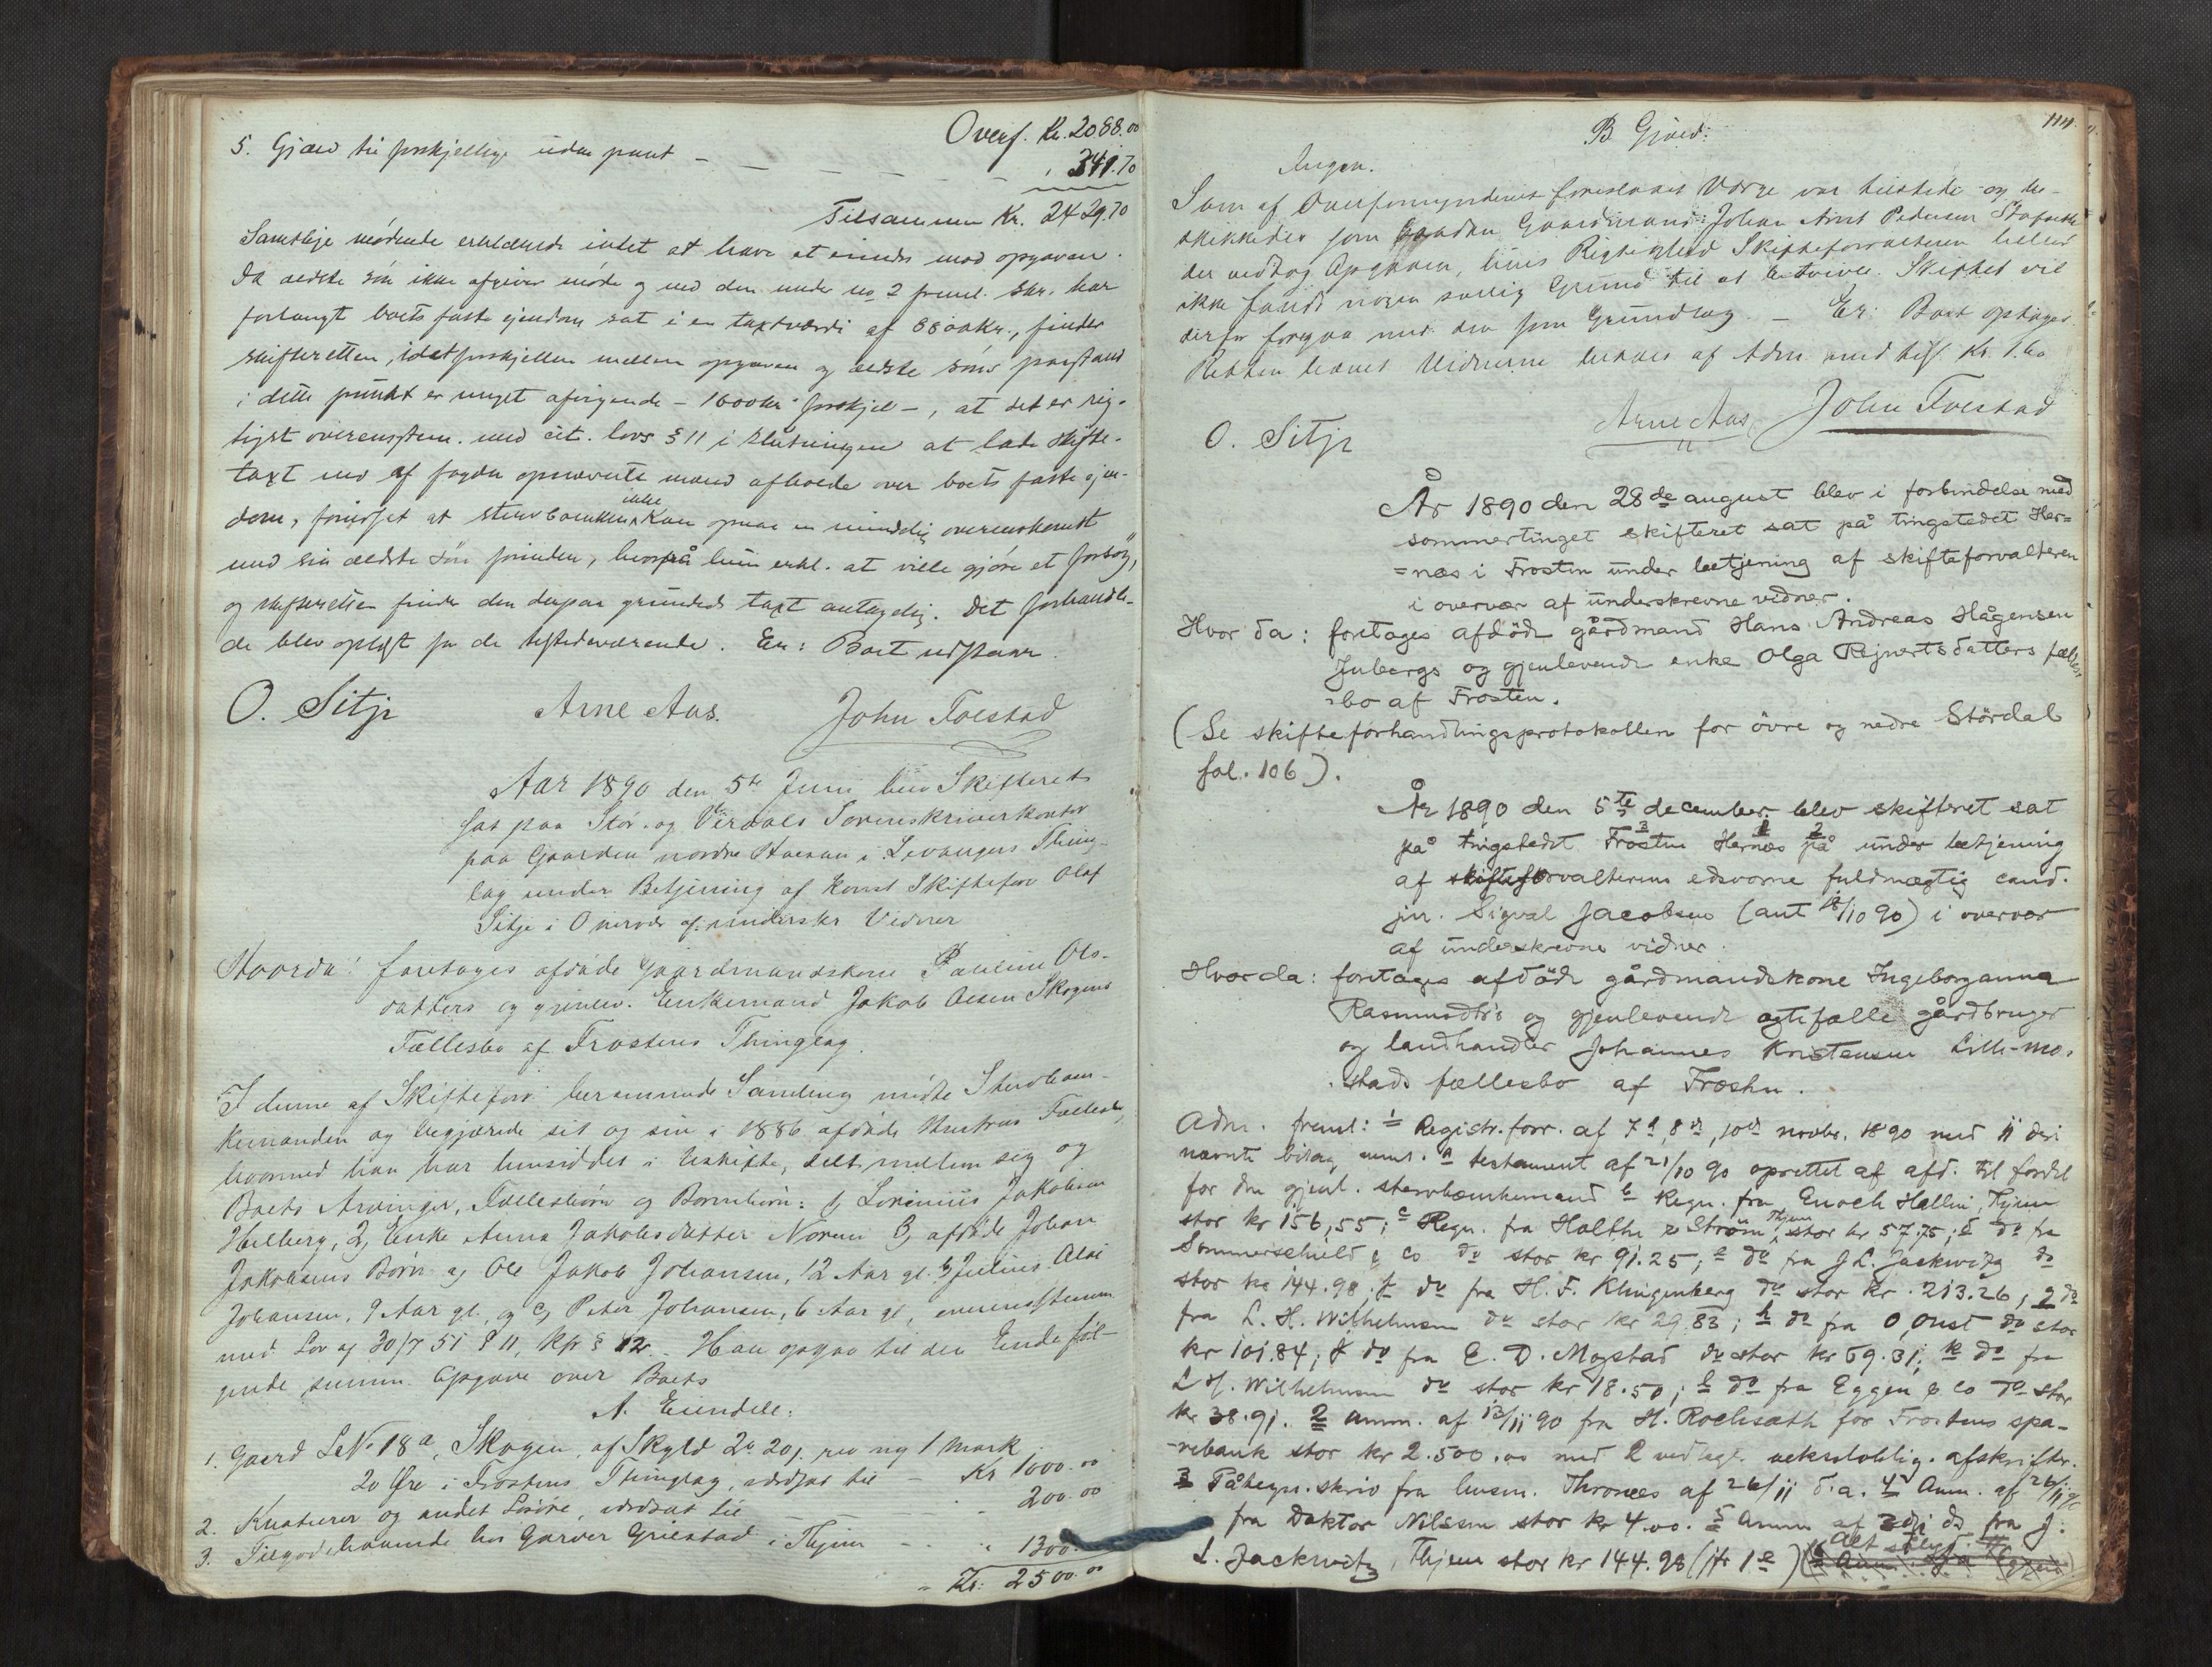 Overf. Kr. 2088.00
5. Gjæld til forskjellige uden pant - - - - - 341.70
Tilsammen Kr. 2429.70
Samtlige mødende erklærede intet at have at erindre mod opgaven.
Da ældste søn ikke afgiver møde og ved den under no 2 freml. skr. har
forlangt boets faste ejendom sat i en taxtværdi af 6800 Kr., finder
skifteretten, idet forskjellen mellem opgaven og ældste søns paastand
i dette punkt er meget afvigende - 1600 kr forskjel -, at det er rig-
tigst overensstem. med cit. lovs § 11 i slutningen at lade skifte-
taxt ved af fogden opnævnte mænd afholde over boets faste ejen-
dom, forudsat at stervboenken ikke kan opnaa en mindelig overenskomst
med sin ældste søn forinden, hvorpå hun erkl. at ville gjöre et forsög,
og skifteretten finder den derpaa grundede taxt antagelig. Det forhandle-
de blev oplæst for de tilstedeværende. Er: Boet udstaar.
O. Sitje Arne Aas. John Folstad
Aar 1890 den 5te Juni blev Skifteret
sat paa Stør- og Værdals Sorenskriverkontor
paa Gaarden nordre Staexan i Levangers Thing-
lag under Betjening af konst Skiftefor Olaf
Sitje i Overvær af underskr Vidner
Hvorda: foretoges afdøde Gaardmandskone Pauline Ols-
datters og gjenlev. Enkemand Jakob Olsen Skogens
Fællesbo af Frostens Thinglag.
I denne af Skifteforv berammede Samling mødte Stervboen-
kemanden og begjærede sit og sin i 1886 afdøde Hustrus Fællesbo,
hvormed han har hensiddet i Uskifte, delt mellem sig og
Boets Arvinger, Fællesbørn og Børnebørn: 1, Lorinius Jakobsen
Helberg, 2, Enke Anna Jakobsdatter Norum 3, afdøde Johan
Jakobsens Børn a, Ole Jakob Johansen, 12 Aar gl. b, Julius Olai
Johansen, 9 Aar gl., og c, Peter Johansen, 6 Aar gl, overensstemm
med Lov af 30/7 51 § 11, kfr § 12. Han opgav til den Ende føl-
gende summ. Opgave over Boets
A. Eiendele:
1. Gaard LNo 18a, Skogen, af Skyld 2 20, rev ny 1 Mark
20 Øre i Frostens Thinglag, værdsat til - Kr 1000.00
2. Kreaturer og andet Løsøre, værdsat til - - - 200.00
3. Tilgodehavende hos Garver Grilstad i Thjem - - " 1300.
- Kr: 2500.00
114.
B Gjæld:
Ingen.
Som af Overformynderiet foreslaaet Værge var tilstede og be-
skikkedes som saadan Gaardmand Johan Arnt Pedersen
der vedtog Opgaven, hvis Rigtighed Skifteforvalteren heller
ikke fandt nogen særlig Grund til at betvivle. Skiftet vil
derfor foregaa med den som Grundlag. - Er: Boet optages.
Retten hævet Vidnerne betales af Adm med tils. Kr. 1.60
O. Sitje Arne Aas John Folstad
År 1890 den 28de august blev i forbindelse med
sommertinget skifteret sat på tingstedet Her=
=næs i Frosten under betjening af skifteforvalteren
i overvær af underskrevne vidner.
Hvor da: foretoges afdöde gårdmand Hans Andreas Hågensen
Jubergs og gjenlevende enke Olga Rejnertsdatters fælles
=bo af Frosten.
(Se skifteforhandlingsprotokollen for övre og nedre Stördal
fol. 106).
År 1890 den 5te december blev skifteret sat
på tingstedet Frosten Hernæs på under betjening
af skifteforvalterens edsvorne fuldmægtig cand.
jur. Sigval Jacobsen (aut 18/10 90) i overvær
af underskrevne vidner.
Hvorda: foretages afdöde gårdmandskone Ingeborganna
Rasmusdtr's og gjenlevende ægtefælle gårdbruger
og landhandler Johannes Kristensen Lille-mo-
stads fællesbo af Frosten.
Adm. freml: 1 Registr.forr. af 7de, 8de, 10de novbr. 1890 med 11 deri
nævnte bilag neml. a testament af 21/10 90 oprettet af afd. til fordel
for den gjenl. stervboenkemand b Regn. fra Enoch Hallin, Thjem
stor kr 156,55; c Regn. fra Holthe & Ström, Thjem stor kr 57.75; d do fra
Sommerschield & Co do stor kr 91.25; e do fra J L. Jackwitz do
stor kr 144.98. f do fra H. F. Klingenberg do stor kr. 213.26; g do
fra L. H. Wilhelmsen do stor kr 29.83; h do fra O. Aust do stor
kr 101.84; j do fra E. D. Mogstad do stor kr 69.31; k do fra
L H. Wilhelmsen do stor kr 18.50; l do fra Eggen & Co do stor
kr 38.91. 2 anm. af 13/11 90 fra H. Rochseth for Frostens spa-
-rebank stor kr 2.500.00 med 2 vedlagt. vekselobblig. afskrifter.
3 Påtegn. skriv fra lensm. Thronæs af 26/11 d.a. 4 Anm. af 26/11 90
fra Doktor Nilssen stor kr 4.00. 5 Anm af do fra J.
L. Jackwitz, Thjem stor kr 144.98 (jfr 1 e) Alt